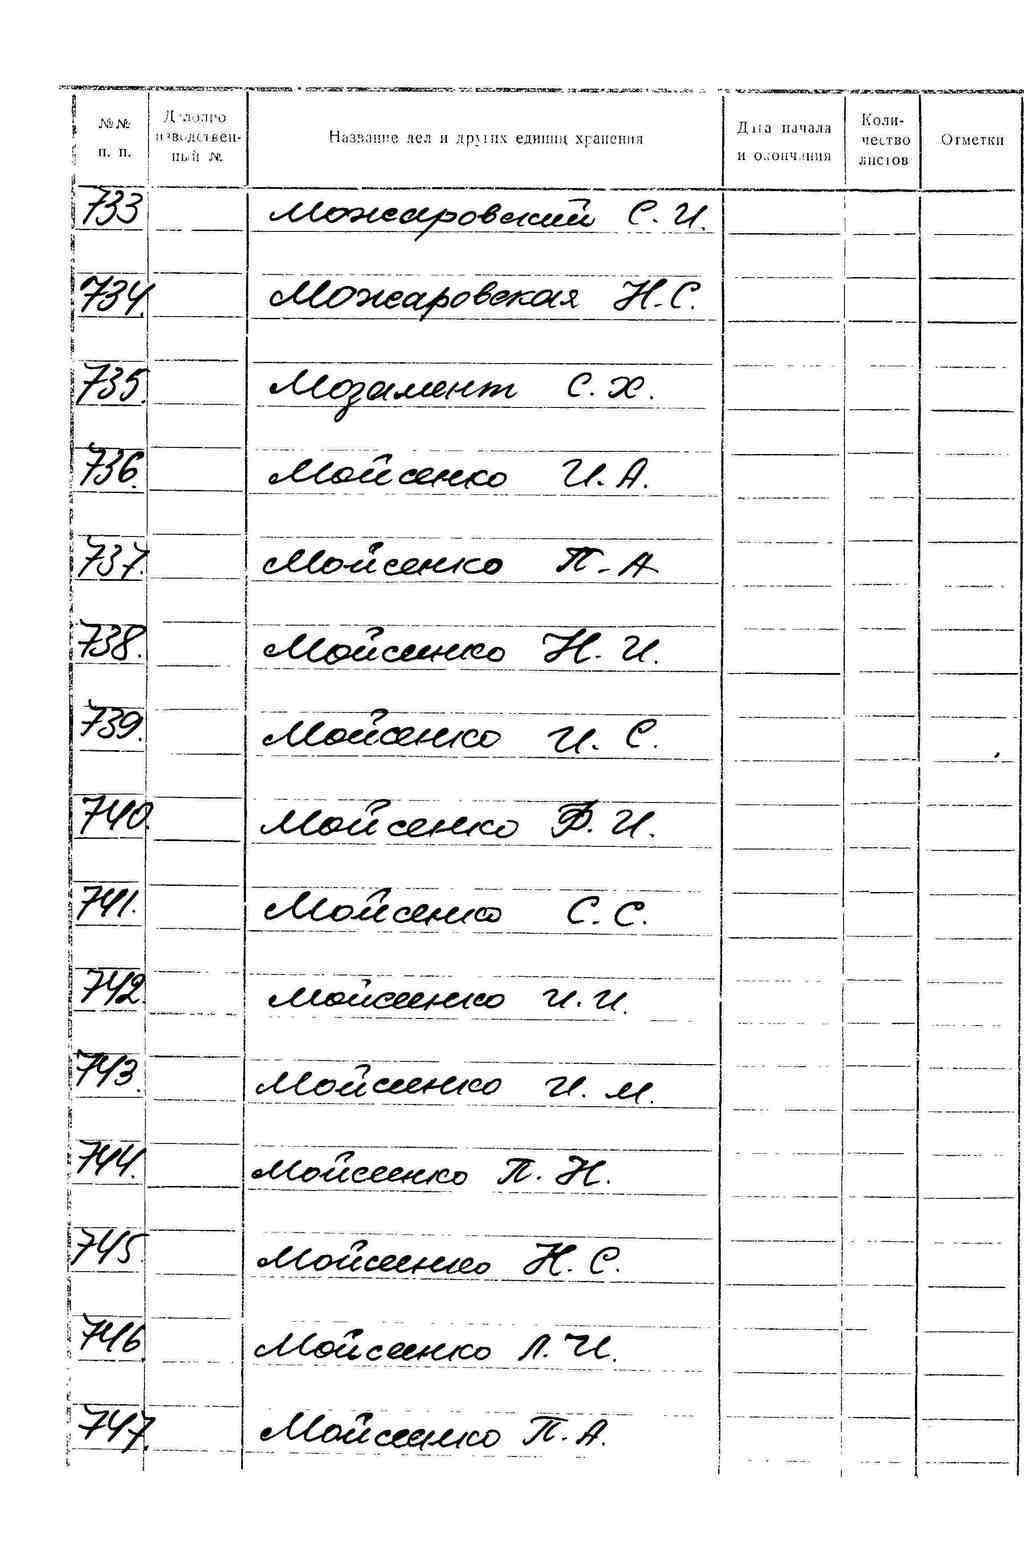 №№ п. п. Делопроизводственный № Название дел и других единиц хранения Дата начала и окончания Количество листов Отметки
733 Можаровский С. И.
734. Можаровская Н. С.
735. Мозамент С. Х.
736. Мойсенко И. А.
737. Мойсенко П. А
738. Мойсеенко Н. И.
739. Мойсенко И. С.
740. Мойсенко Ф. И.
741. Мойсенко С. С.
742. Мойсеенко И. И.
743. Мойсеенко И. М.
744. Мойсеенко П. Н.
745. Мойсеенко Н. С.
746 Мойсеенко Л. И.
747. Мойсеенко П. А.